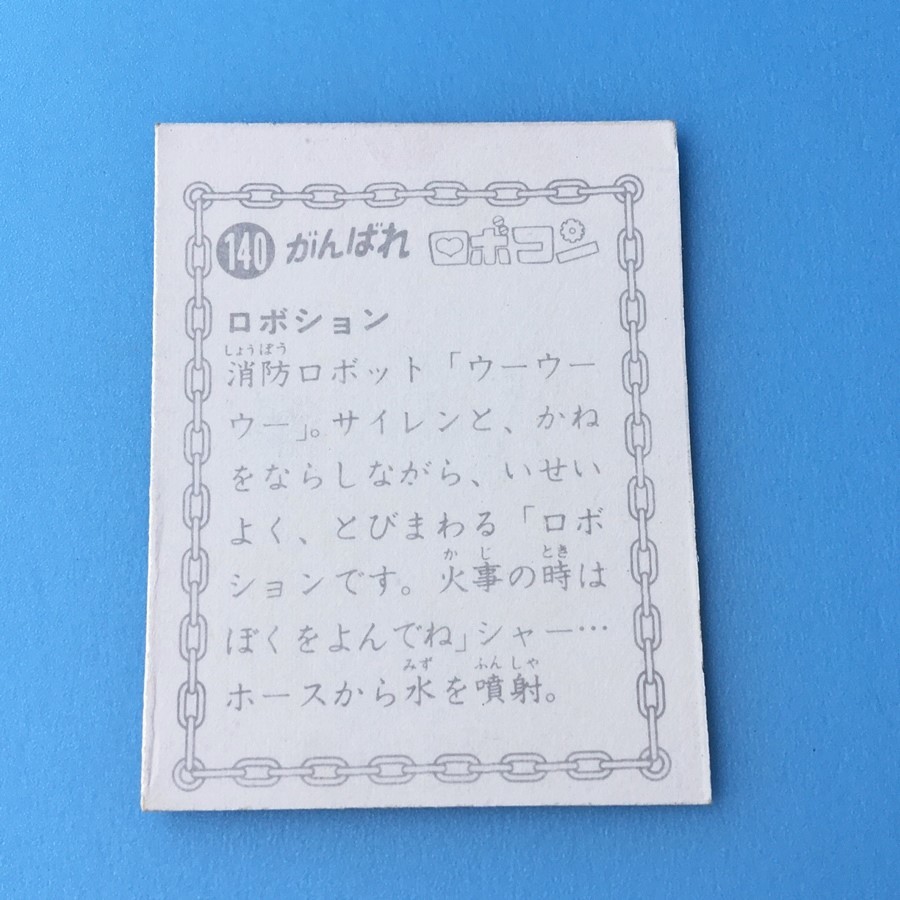 140 がんばれ ロボコン
ロボション
しょうぼう
消防ロボット「ウーウー
ウー」。サイレンと、かね
をならしながら、いせい
よく、とびまわる「ロボ
かじ とき
ションです。火事の時は
ぼくをよんでね」シャー…
みず ふんしゃ
ホースから水を噴射。